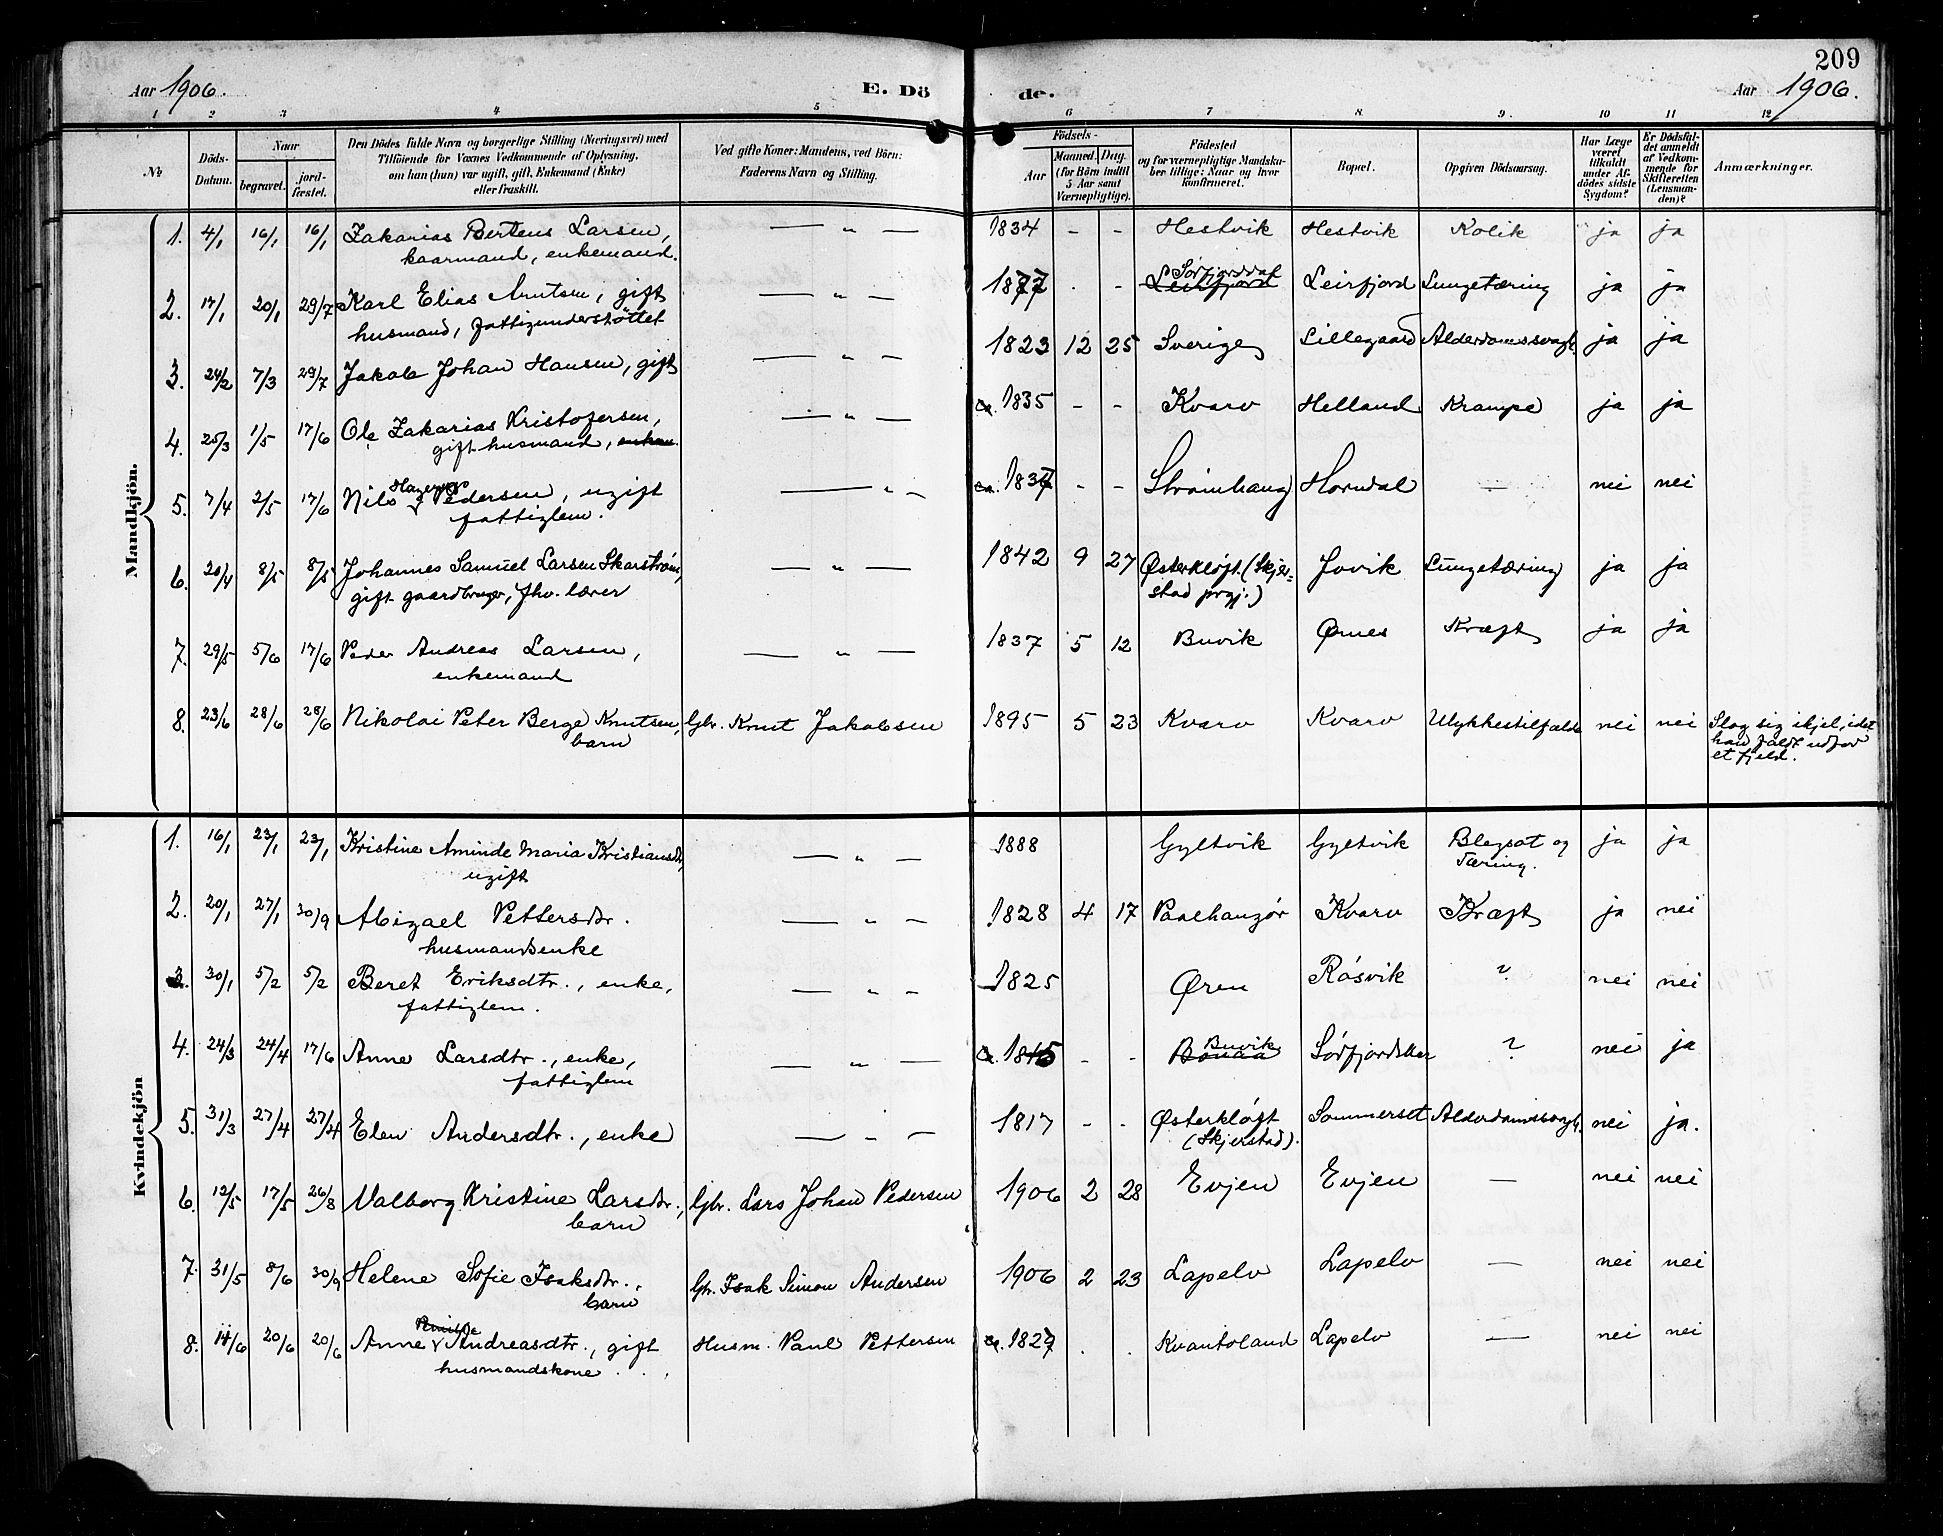 209
Aar 1906. E. Dö de. Aar 1906.
1 2 3 4 5 6 7 8. 9. 10 11 12
No. Döds-Datum. Naar begravet. jord-fæstet. Den Dödes fulde Navn og borgerlige Stilling (Næringsvei) med Tilföiende for Voxnes Vedkommende af Oplysning, om han (hun) var ugift, gift, Enkemand (Enke) eller fraskilt. Ved gifte Koner: Mandens, ved Börn: Faderens Navn og Stilling. Födsels- Aar Maaned. Dag. (for Börn indtil 5 Aar samt Værnepligtige). Födested og for værnepligtige Mandskaber tillige: Naar og hvor konfirmeret. Bopæl. Opgiven Dödsaarsag. Har Læge været tilkaldt under Afdödes sidste Sygdom? Er Dödsfaldet anmeldt af Vedkommende for Skifteretten (Lensmanden)? Anmærkninger.
Mandkjön.
1. 4/1 16/1 16/1 Zakarias Bertens Larsen, — „ — 1834 - - Hestvik Hestvik Kolik ja ja
kaarmand, enkemand.
2. 17/1 20/1 29/7 Karl Elias Knutsen, gift — „ — 1877 . - Leirfjord Sørfjorddal Leirfjord Lungetæring ja ja
husmand, fattigunderstøttet
3. 24/2 7/3 29/7 Jakob Johan Hansen, gift — „ — 1823 12 25 Sverige Lillegaard Alderdomssvagh. ja ja
4. 25/3 1/5 17/6 Ole Zakarias Kristofersen, — „ — ca. 1835 - - Kvarv Helland Krampe ja ja
gift husmand,
5. 7/4 2/5 17/6 Nils Pedersen, ugift — „ - ca. 1837 - - Strømhaug Horndal — nei nei
fattiglem.
6. 20/4 8/5 8/5 Johannes Samuel Larsen Skarstrøm, — „ — 1842 9 27 Østerkløft (Skjer- Jovik Lungetæring ja ja
gift gaardbruger, fhv. lærer stad prgj.)
7. 29/5 5/6 17/6 Peder Andreas Larsen, — „ — 1837 5 12 Buvik Ørnes Kræft ja ja
enkemand
8. 23/6 28/6 28/6 Nikolai Peter Berge Knutsen, Gbr. Knut Jakobsen 1895 5 23 Kvarv Kvarv Ulykkestilfælde nei nei Slog sig ihjel, idet
barn han faldt udfor
et fjeld.
Kvindekjön
1. 16/1 23/1 23/1 Kristine Aminde Maria Kristiansdtr, — „ — 1888 Gyltvik Gyltvik Blegsot og ja ja
ugift Tæring.
2. 20/1 27/1 30/9 Abigael Pettersdtr. — „ — 1828 4 17 Paalhangør Kvarv Kræft ja nei
husmandsenke
3. 30/1 5/2 5/2 Beret Eriksdtr., enke, — „ — 1825 Øren Røsvik ? nei nei
fattiglem.
4. 24/3 24/4 17/6 Anne Larsdtr., enke, — „ — ca. 1815 - - Buvik ? nei ja
fattiglem
5. 31/3 27/4 27/4 Elen Andersdtr., enke — „ — 1817 - - Østerkløft Sommerset Alderdomssvagh. nei ja.
(Skjerstad).
6. 12/5 17/5 26/8 Valborg Kristine Larsdtr., Gbr. Lars Johan Pedersen 1906 2 28 Evjen Evjen — nei nei
barn
7. 31/5 8/6 30/9 Helene Sofie Isaksdtr., Gbr. Isak Simon Andersen 1906 2 23 Lapelv Lapelv — nei nei
barn
8. 14/6 20/6 20/6 Anne Andreasdtr., gift Husm. Paul Pettersen ca. 1827 . . Kvantoland Lapelv — nei nei
husmandskone